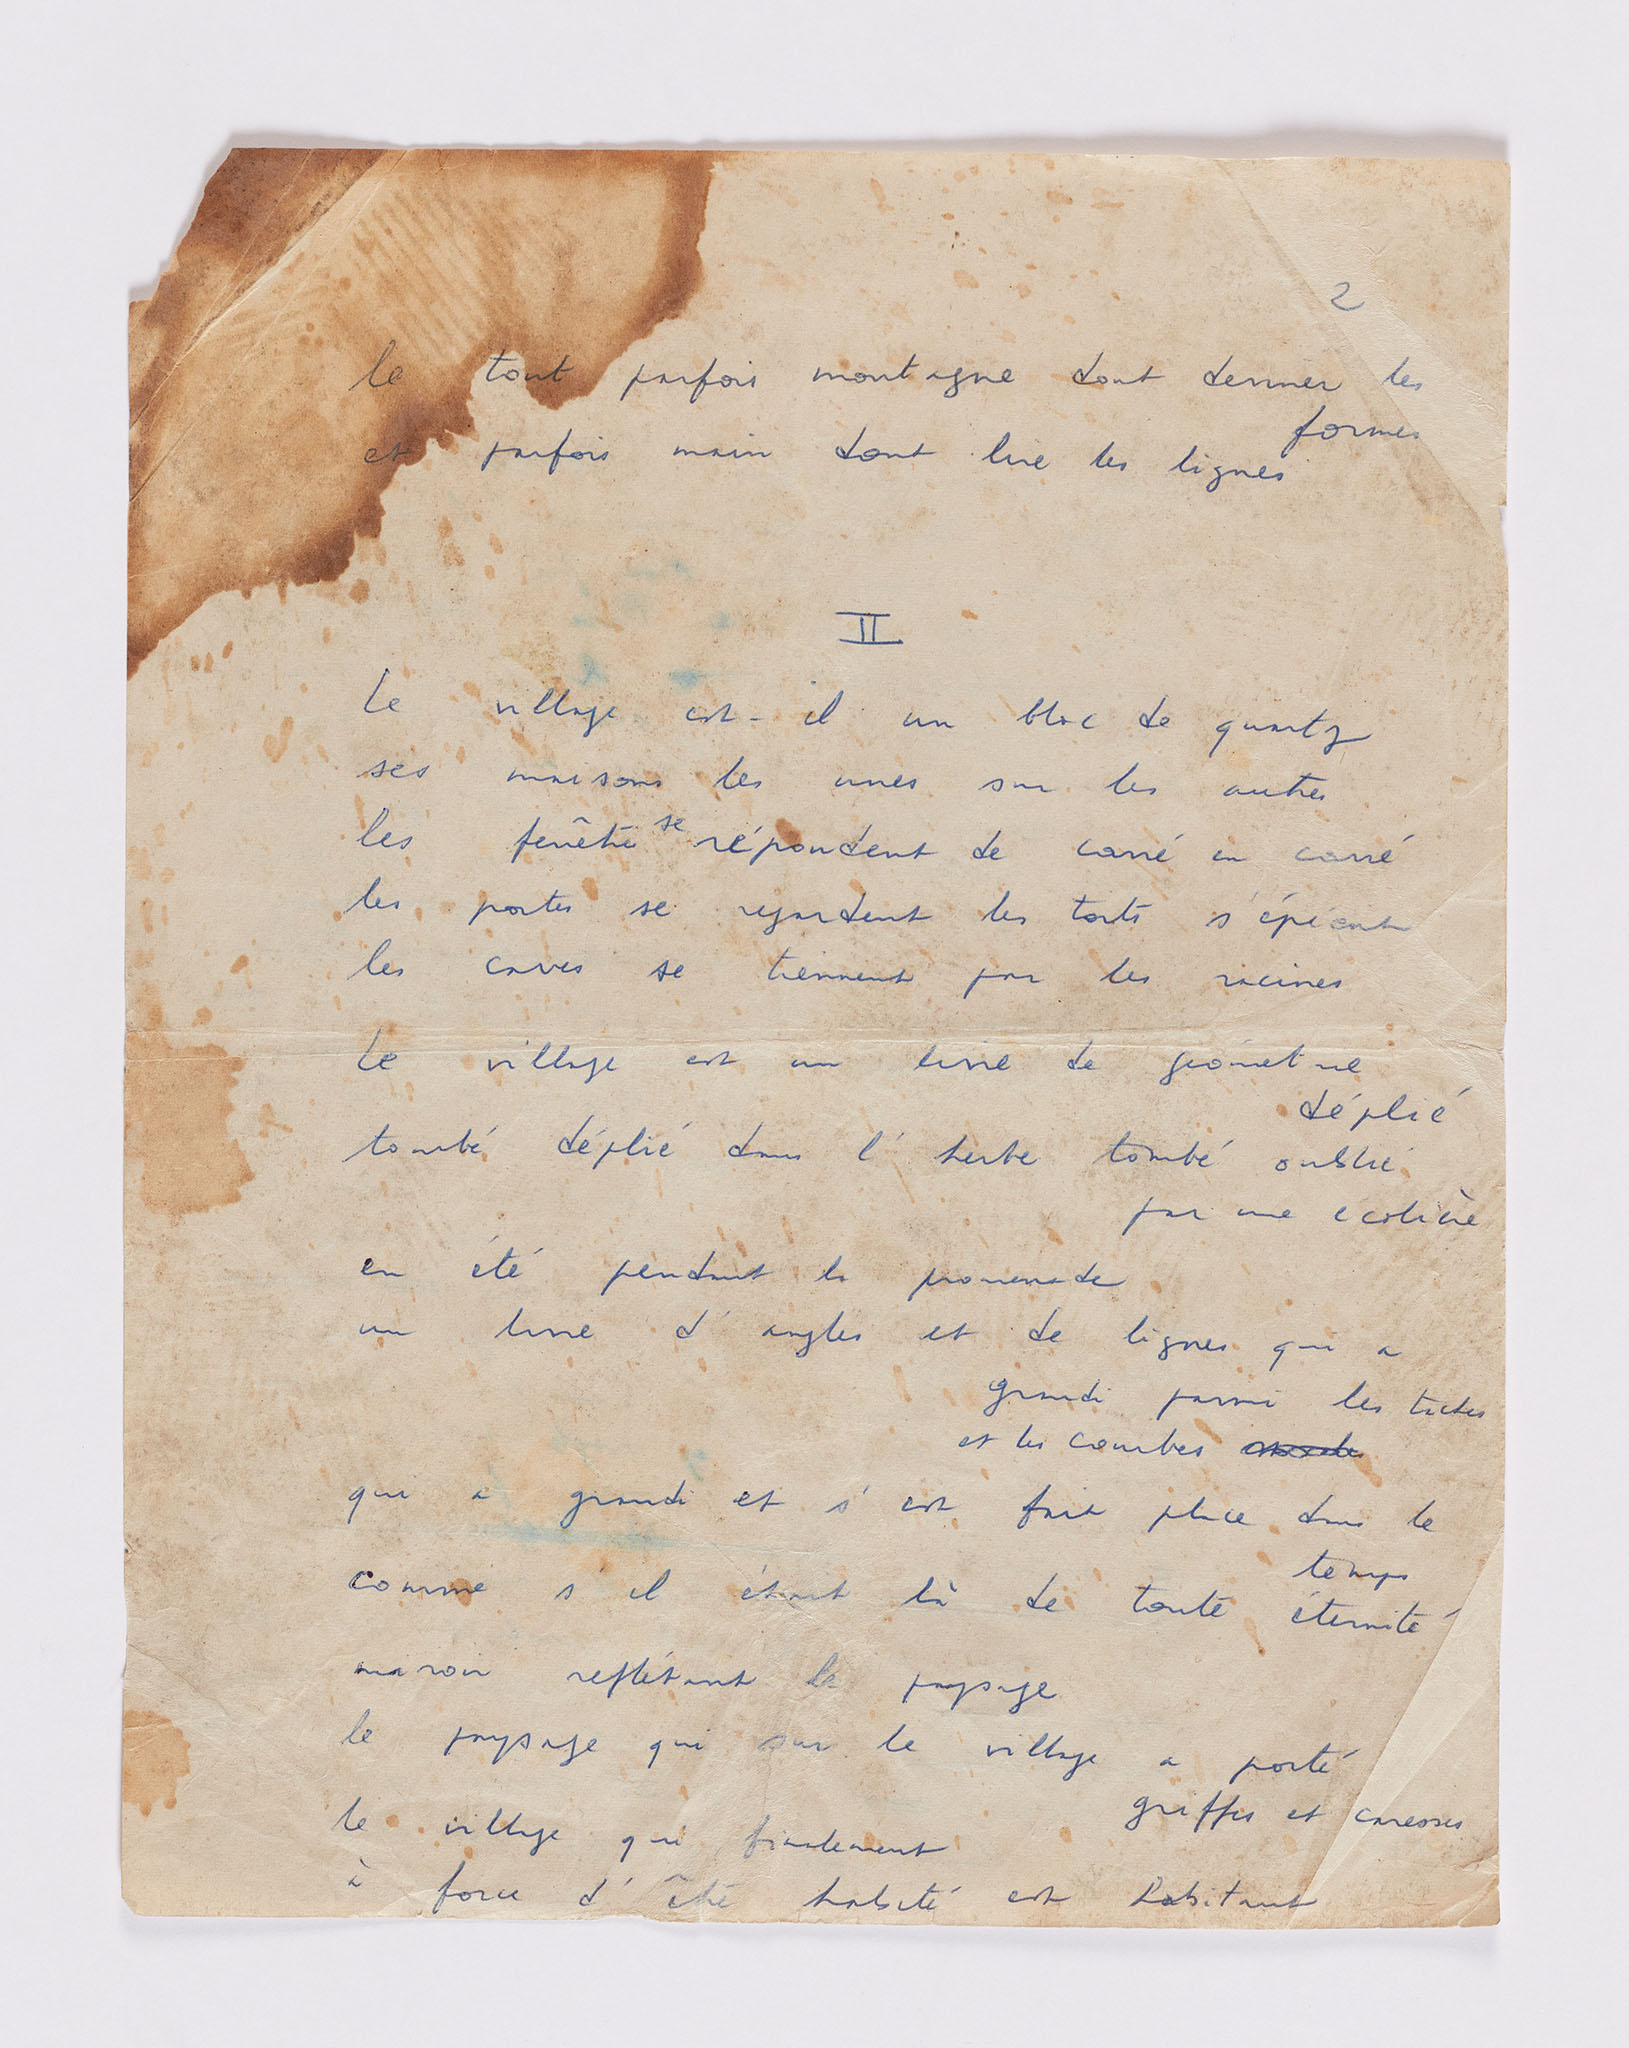 2
le tout parfois montagne dont deviner les
formes
et parfois main dont lire les lignes
II
Le village est-il un bloc de quartz
ses maisons les unes sur les autres
les fenêtres se répondent de carré en carré
les portes se regardent les toits s'épient
les caves se tiennent par les racines
Le village est un livre de géométrie
déplié
tombé déplié dans l'herbe tombé oublié
par une écolière
en été pendant la promenade
un livre d'angles et de lignes qui a
grandi parmi les
et les courbes
qui a grandi et s'est fait place dans le
temps
comme s'il était là de toute éternité
miroir reflétant le paysage
le paysage qui sur le village a porté
griffes et caresses
le village qui finalement
à force d'être habité est habitant